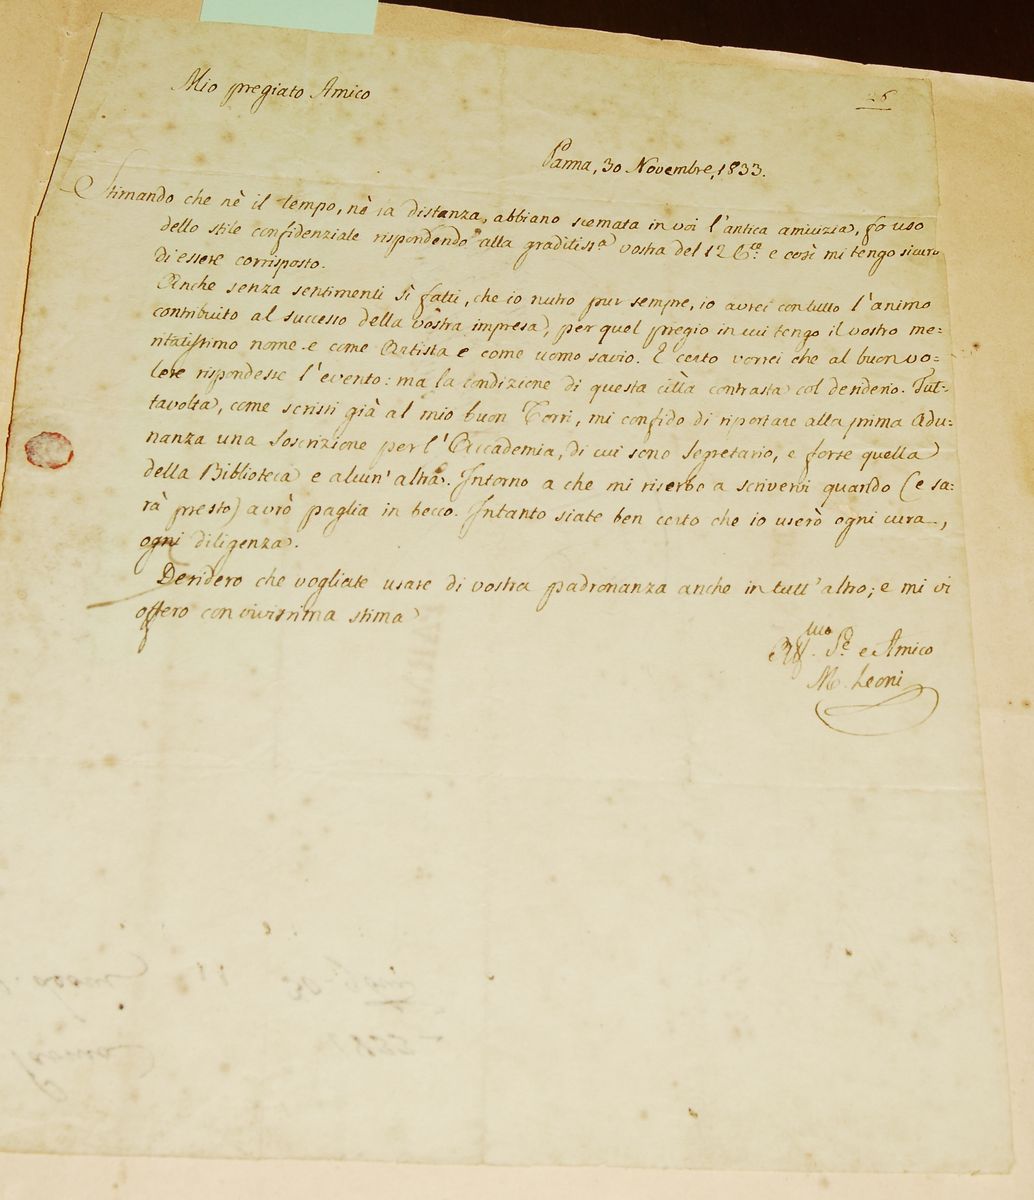 Mio pregiato Amico
26
Parma, 30 Novembre, 1833.
Stimando che nè il tempo, nè la distanza, abbiano scemata in voi l'antica amicizia, fo uso
dello stile confidenziale rispondendo alla graditissᵃ vostra del 12 e così mi tengo sicuro
di essere corrisposto.
Anche senza sentimenti sì fatti, che io nutro pur sempre, io avrei con tutto l'animo
contribuito al successo della vostra impresa, per quel pregio in cui tengo il vostro me=
ritatissimo nome e come Artista e come uomo savio. E certo vorrei che al buon vo=
lere rispondesse l'evento: ma la condizione di questa città contrasta col desiderio. Tut=
tavolta, come scrissi già al mio buon Torri, mi confido di riportare alla prima Adu=
nanza una soscrizione per l'Accademia, di cui sono Segretario, e forse quella
della Biblioteca e alcun' altra. Intorno a che mi riserbo a scrivervi quando (e sa=
rà presto) avrò paglia in becco. Intanto siate ben certo che io userò ogni cura,
ogni diligenza.
Desidero che vogliate usare di vostra padronanza anche in tutt'altro; e mi vi
offero con vivissima stima
e Amico
M. Leoni
1833